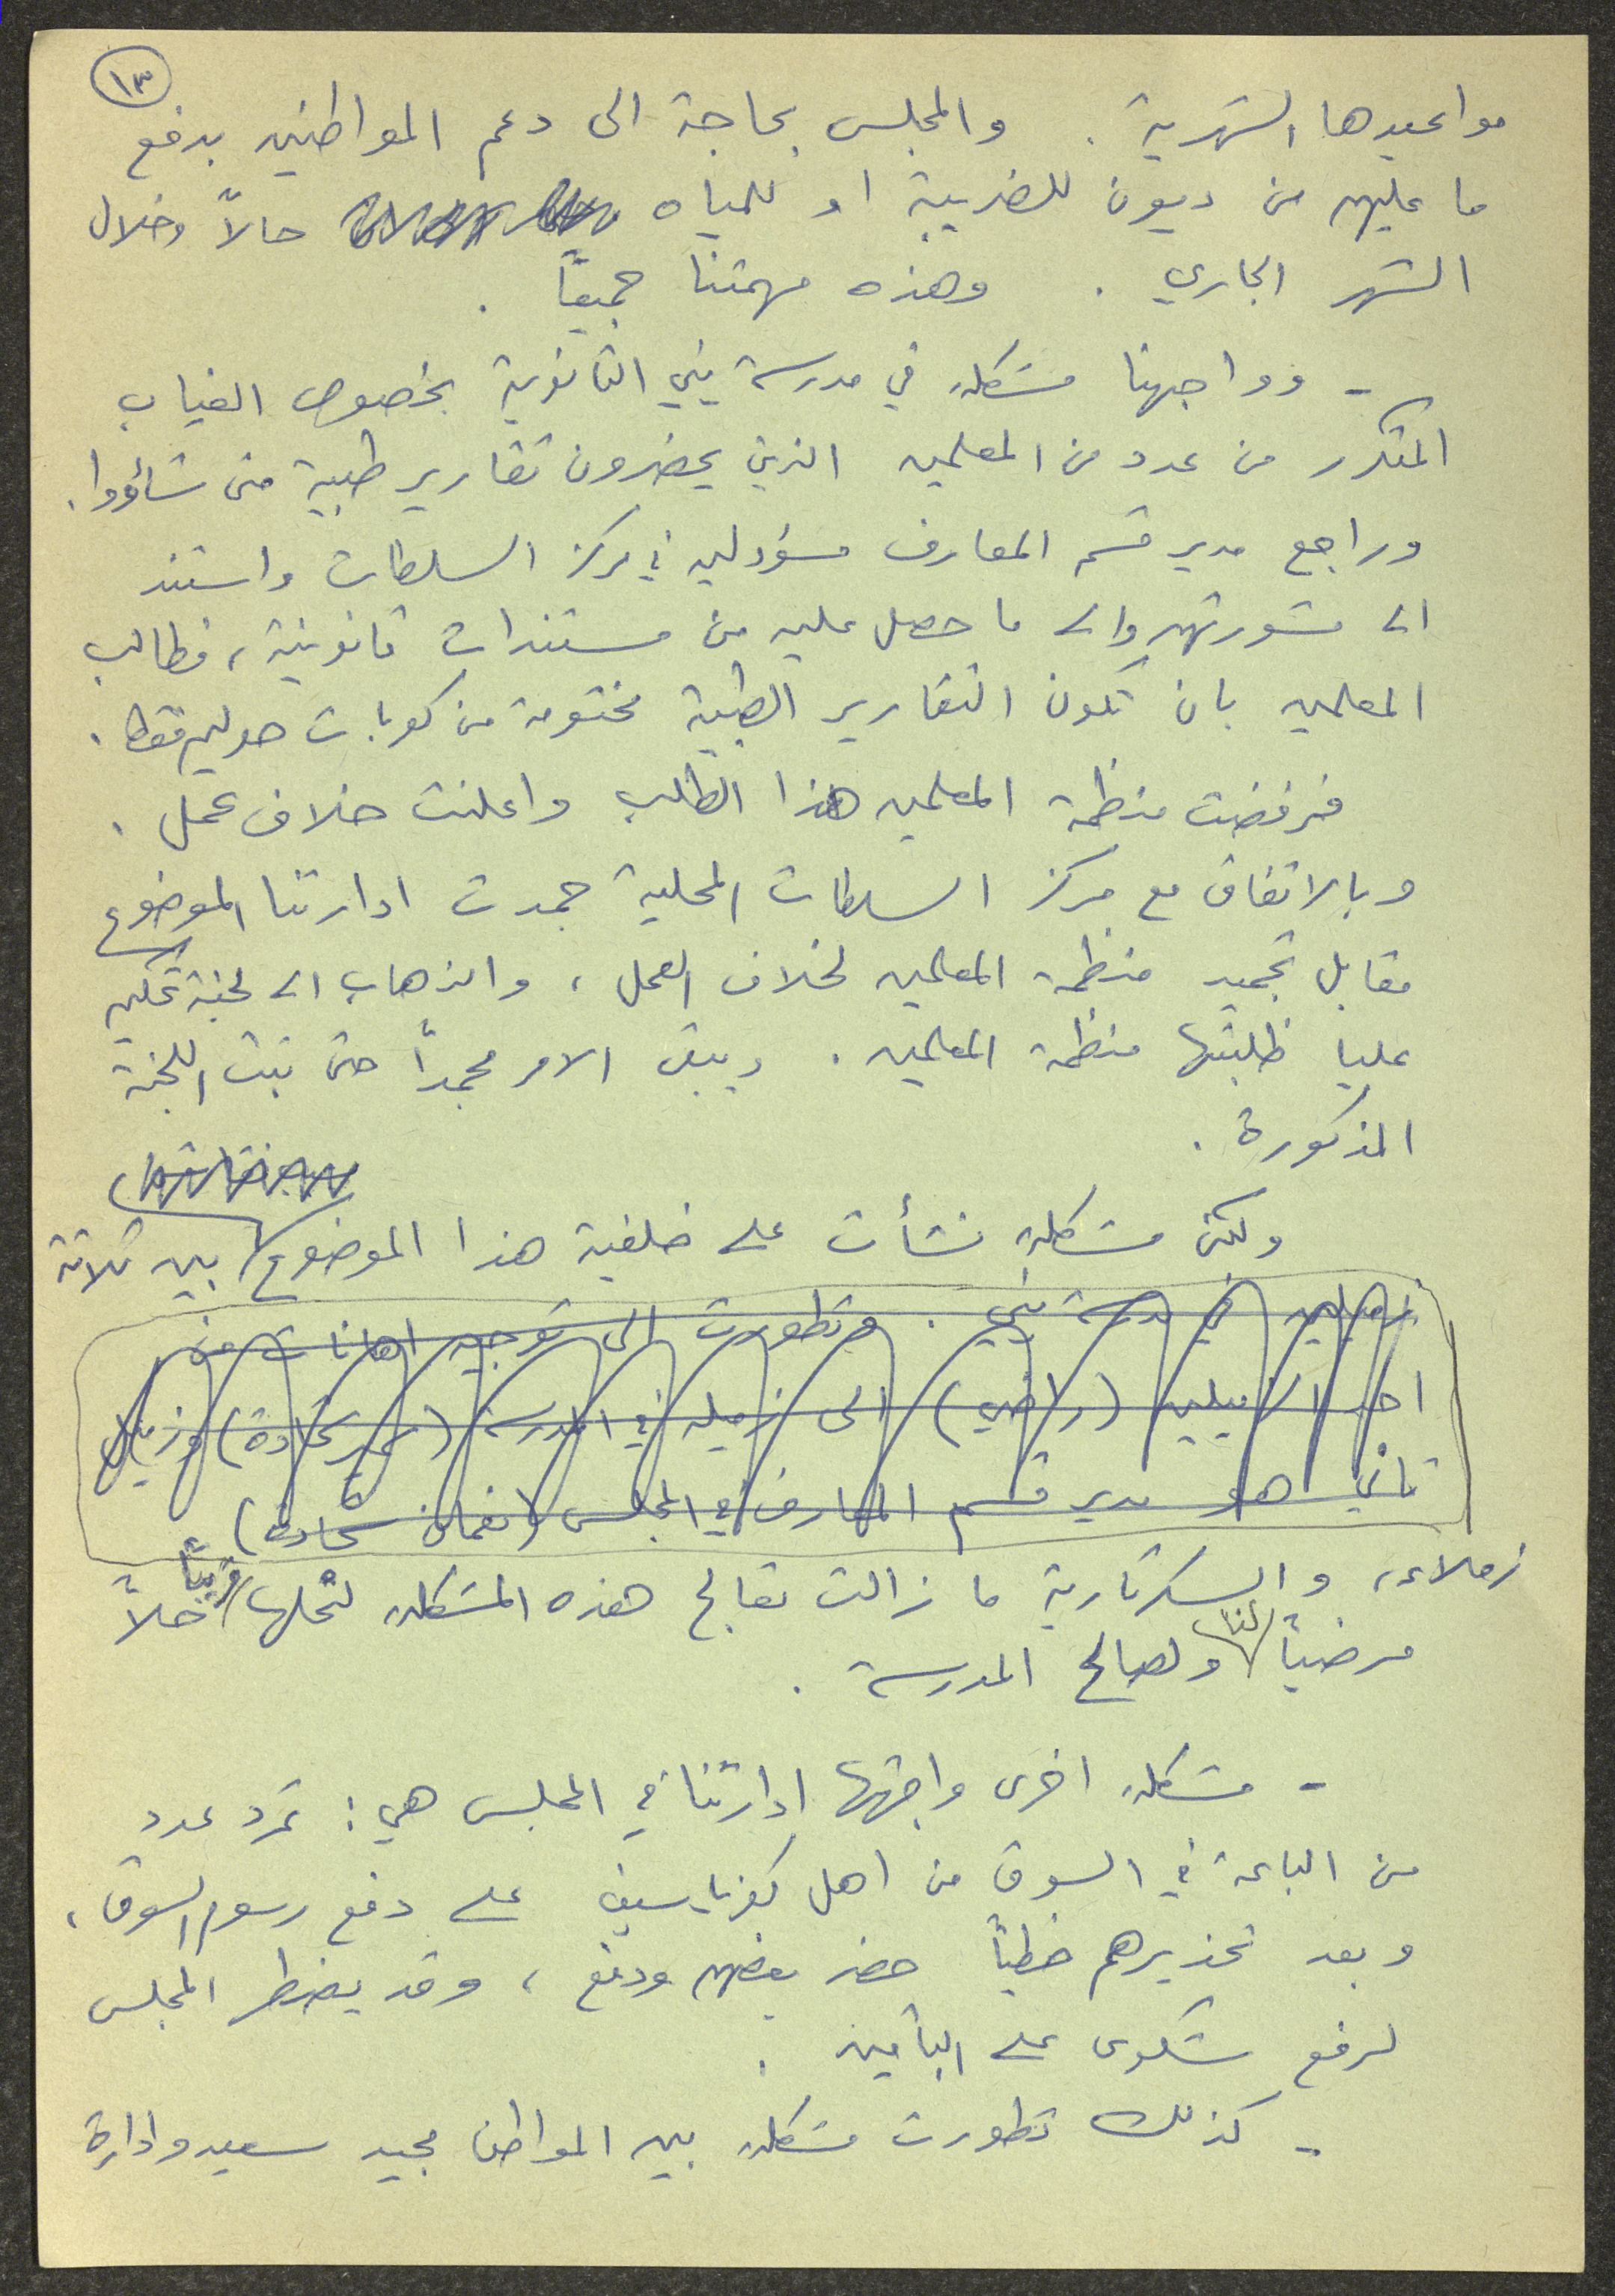 ١٣
مواعيدها الشهرية . والمجلس بحاجة الى دعم المواطنين بدفع
ما عليهم من ديون للضريبة او للمياه حالاً وخلال
الشهر الجاري . وهذه مهمتنا جميعاً .
- وواجهنا مشكلة في مدرسة يني الثانوية بخصوص الغياب
المتكرر من عدد من المعلمين الذين يحضرون تقارير طبية متى شاؤوا .
وراجع مدير قسم المعارف مسؤولين في مركز السلطات واستند
الى مشورتهم والى ما حصل عليه من مستندات قانونية ، فطالب
المعلمين بان تكون التقارير الطبية مختومة من كوبات حوليم فقط .
فرفضت منظمة المعلمين هذا الطلب واعلنت خلاف عمل .
وبالاتفاق مع مركز السلطات المحلية جمدت ادارتنا الموضوع
مقابل تجميد منظمة المعلمين لخلاف العمل ، والذهاب الى لجنة تحكيم
عليا طلبتها منظمة المعلمين . ويبقى الامر مجمداً حتى تبت اللجنة
المذكورة .
ولكن مشكلة نشأت على خلفية هذا الموضوع بين ثلاثة
زميلين في مدرسة يني . وتطورت الى توجيه اهانات من
احد الزميلين (راضي) الى زميله في المدرسة (شحادة) وزميل
ثاني هو مدير قسم المعارف في المجلس (نعمان شحادة)
زملاء ، والسكرتارية ما زالت تعالج هذه المشكلة لتحلها قريباً حلاً
مرضياً لنا ولصالح المدرسة .
- مشكلة اخرى واجهتها ادارتنا في المجلس هي : تمرد عدد
من الباعة في السوق من اهل كفرياسيف على دفع رسوم السوق ،
وبعد تحذيرهم خطياً حضر بعضهم ودفع ، وقد يضطر المجلس
لرفع شكوى على الباقين .
- كذلك تطورت مشكلة بين المواطن مجيد سعيد وادارة